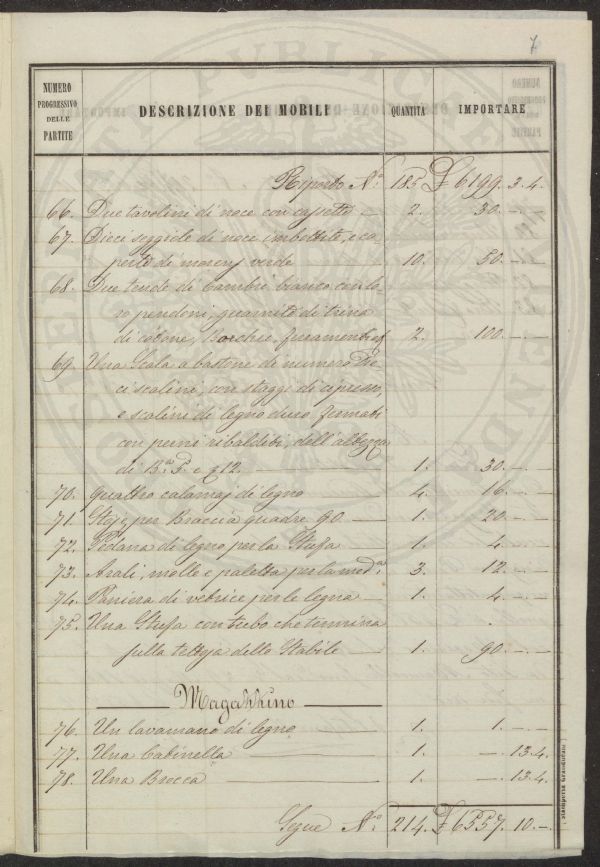 7
NUMERO PROGRESSIVO DELLE PARTITE | DESCRIZIONE DEI MOBILI | QUANTITÀ | IMPORTARE
Riporto N.o 185 £ 6199. 3. 4.
66. Due tavolini di noce con cassetti — 2. 30. — . —
67. Dieci seggiole di noce imbottite, e co
perte di moreng verde — 10. 50. — . —
68. Due tende di cambrì bianco con lo
ro pendoni, guarnite di trina
di cotone, Bacchio, ferramenti — 2. 100. — . —
69. Una Scala a bastone di numero Die
ci scalini, con staggi di cipresso,
e scalini di legno duro, fermati
con perni ribaditi, dell'altezza
di B.a 5. e q. 12 — 1. 30. — . —
70. Quattro calamaj di legno — 4. 16. — . —
71. Stoje per Braccia quadre 90 — 1. 20. — . —
72. Pedana di legno per la Stufa — 1. 4. — . —
73. Arali, molle e paletta per la med.a 3. 12. — . —
74. Paniera di vetrice per le legna — 1. 4. — . —
75. Una Stufa con tubo che termina
sulla tettoja dello Stabile — 1. 90. — . —
Magazzino
76. Un lavamano di legno — 1. 1. — . —
77. Una Catinella — 1. — . 13. 4.
78. Una Brocca — 1. — . 13. 4.
Segue N.o 214. £ 6557. 10. —
Stamperia Granducale